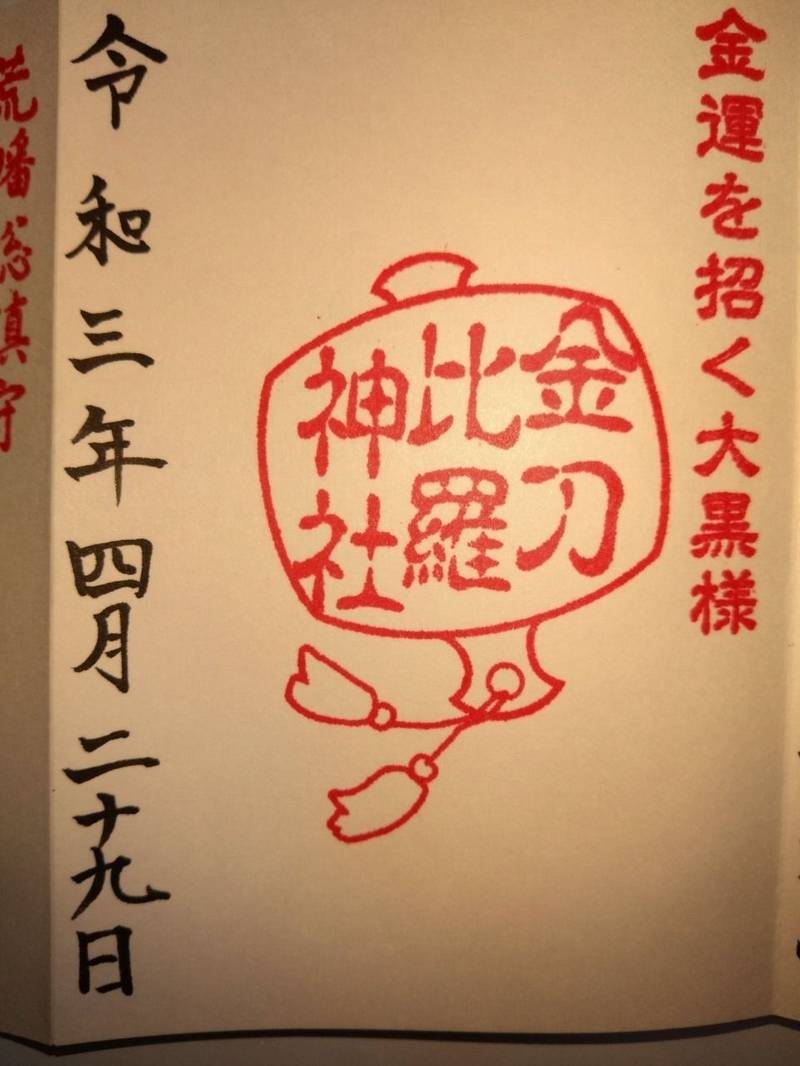 金運を招く大黒様
金刀
比羅
神社
令和三年四月二十九日
荒幡総鎮守